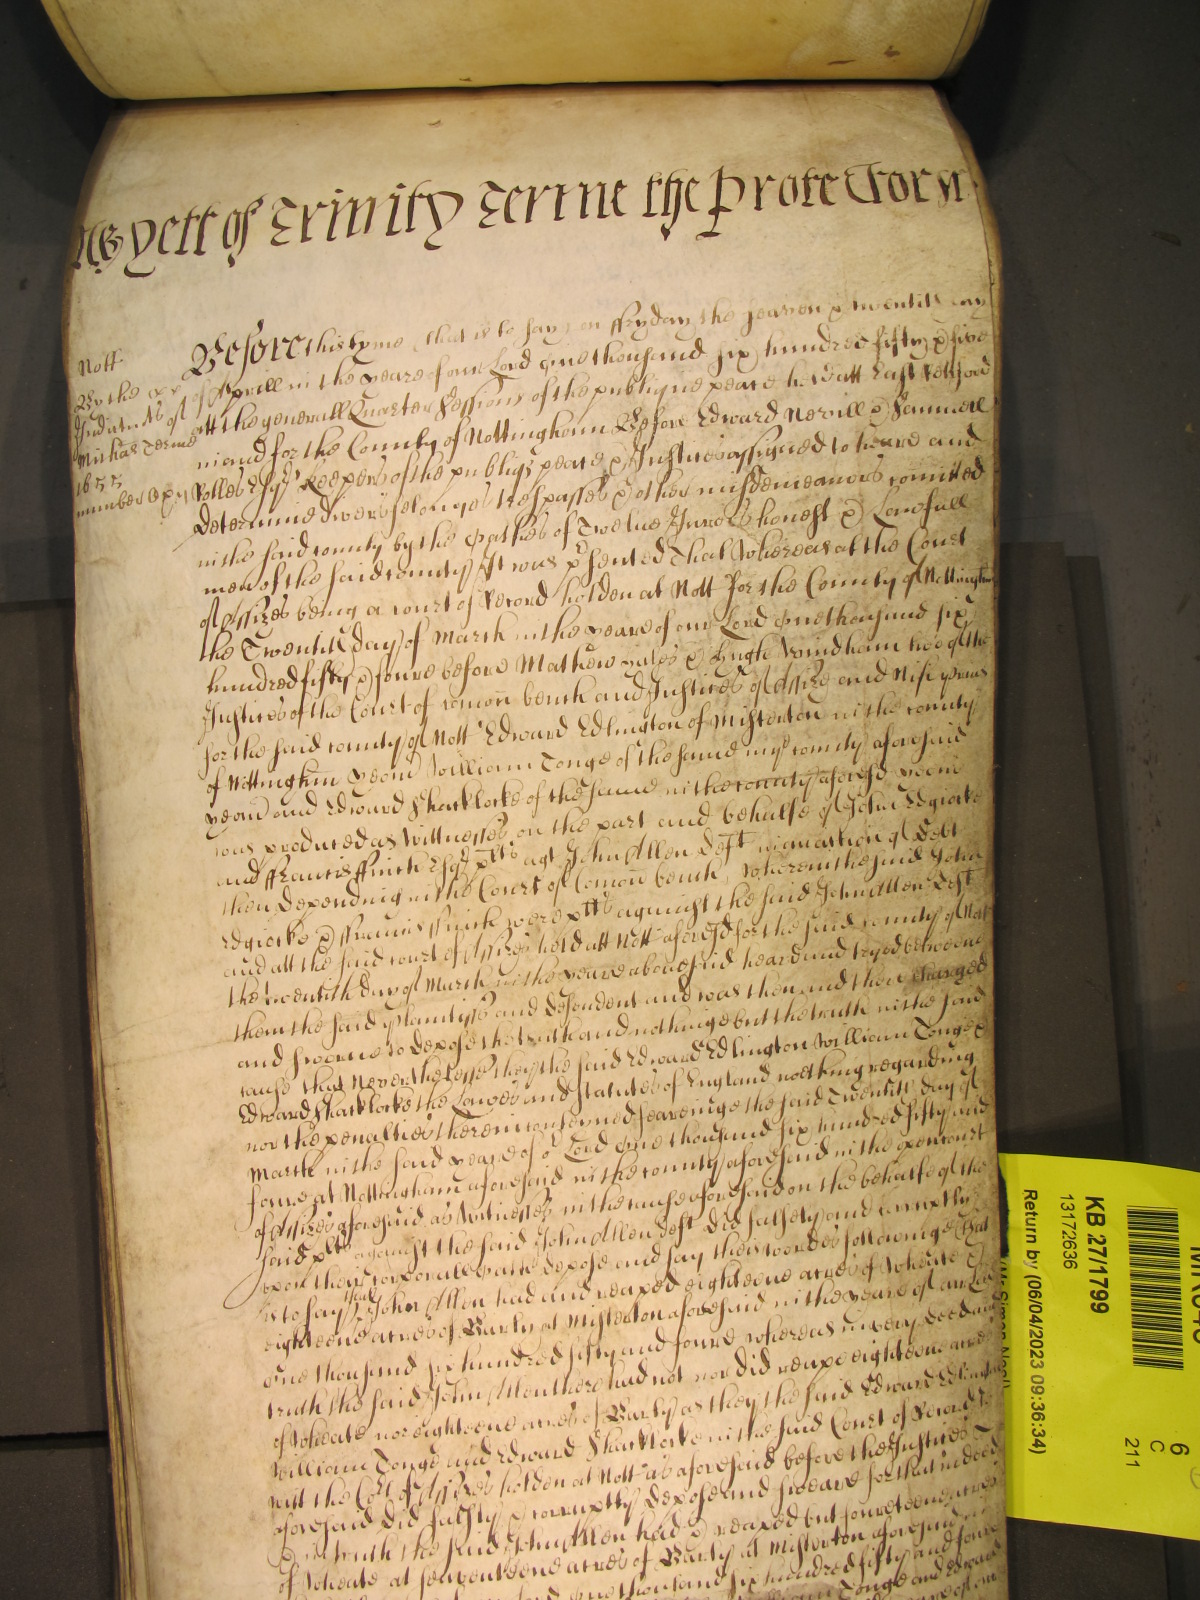 As yett of Trinity Terme the Protector
Nott
By the
Indictmts of
Michas Terme
1655
number
Before this tyme that is to say on ffryday the seaven & twentith day
of Aprill in the yeare of our Lord one thousand six hundred fifty & five
att the generall Quarter Sessions of the publique peace held att East Retford
in and for the County of Nottingham Before Edward Nevill & Samuell
Rolles Esqs Keepers of the publiq peace & Justices assigned to heare and
determine divers felonyes trespasses & other misdemeanors comitted
in the said county by the oathes of Twelve Jurors honest & Lawfull
men of the said county It was psented That Whereas at the Court
of Assizes being a court of Record holden at Nott for the County of Nottingham
the Twentith day of March in the yeare of our Lord one thousand six
hundred fifty & foure before Mathew Hales & Hugh Windham two of the
Justices of the Court of comon bench and Justices of Assize and Nisi prius
for the said county of Nott Edward Edlington of Misterton in the county
of Nottingham yeom William Tonge of the same in ye county aforesaid
yeom and Edward Sharklocke of the same in the county aforesd yeom
was produced as Wittnesses on the part and behalfe of John Edgiocke
and ffrancis ffinch Esqs pltts agt John Allen deft in an action of Debt
then depending in the Court of Comon bench Wherein the said John
Edgiocke & ffrancis ffinch were pltts against the said John Allen Deft
and att the said court of Assizes held att Nott aforesd for the said county of Nott
the twentith day of March in the yeare abovesaid heard and tryed betweene
them the said plantiffs and defendent and was then and there charged
and sworne to depose the truth and nothinge but the truth in the said
cause that Neverthelesse they the said Edward Edlington William Tonge &
Edward Sharklocke the Lawes and statutes of England nothing regarding
nor the penalties therein conteyned feareinge the said Twentith day of
March in the said yeare of or Lord one thousand six hundred fifty and
foure at Nottingham aforesaid in the county aforesaid in the open court
of Assizes aforesaid as Witnesses in the cause aforesaid on the behalfe of the
said pltts against the said John Allen deft Did falsely and corruptly
upon their corporall oath depose and say theis wordes followinge that
is to say that John Allen had and reaped eighteene acres of Wheate &
eighteene acres of Barly at Misterton aforesaid in the yeare of our Lord
one thousand six hundred fifty and foure whereas in very deed and
truth the said John Allen there had not nor did reape eighteene acres
of Wheate nor eighteene acres of Barly as they the said Edward Edlington
William Tonge and Edward Sharklocke in the said Court of Record
the Cort of Assizes holden at Nott as aforesaid before the Justices
aforesaid did falsly & corruptly depose and sweare for that indeed
& in truth the said John Allen had & reaped but fourteene acres
of Wheate at seaventeene acres of Barly at Misterton aforesaid in
one thousand six hundred fifty and foure
Tonge and Edward
KB 27/1799
13172636
Return by (06/04/2023 09:36:34)
6
C
211